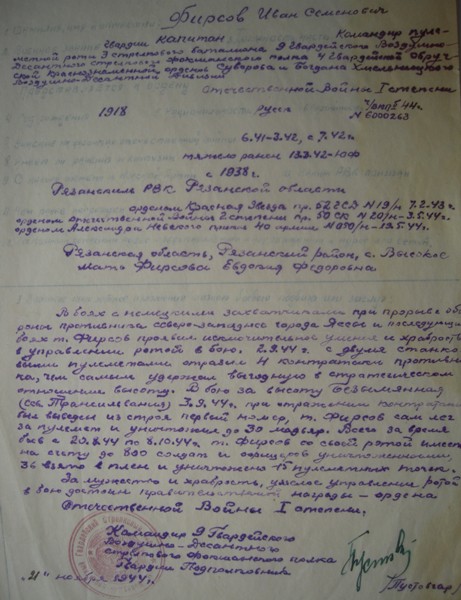 Фирсов Иван Семенович
Гвардии капитан Командир пуле-
метной роты 3 стрелкового батальона 9 Гвардейского Воздушно-
Десантного стрелкового полка 4 Гвардейской Овруч-
ской Краснознаменной, орденов Суворова и Богдана Хмельницкого
Воздушно-Десантной дивизии
Отечественной Войны I степени
1918 русс
N 6000263
6.41-3.42, с 7.42г.
тяжело ранен 13.3.42-Юф
с 1938г.
Рязанским РВК Рязанской области
орденом Красная Звезда N19/н 7.2.43г.
орденом Отечественной Войны 2 степени пр. 50 СК N20/н-3.5.44г.
орденом Александра Невского 40 армии
Рязанская область, Рязанский район, с. Высокое
Мать Фирсова Евдокия Федоровна
В боях с немецкими захватчиками при прорыве обо-
роны противника северо-западнее города Яссы и последующих
боях т. Фирсов проявил исключительное умение и храбрость
в управлении ротой в бою. 2.9.44г. с двумя станко-
выми пулеметами отразил 4 контратаки противни-
ка, чем самым удержал выгодную в стратегическом
отношении высоту. В бою за высоту Безымянная
(Трансильвания) 3.9.44г. при отражении контратаки
был выведен из строя первый номер, т. Фирсов сам лег
за пулемет и уничтожил до 30 мадьяр. Всего за время
боев с 20.8.44 по 8.10.44г. т. Фирсов со своей ротой имеет
на счету до 800 солдат и офицеров уничтоженными,
36 взято в плен и уничтожено 15 пулеметных точек.
За мужество и храбрость, умелое управление ротой
в бою достоин правительственной награды - ордена
Отечественной Войны I степени.
Командир 9 Гвардейского
Воздушно-Десантного
стрелкового полка
Гвардии Подполковник
"21" ноября 1944г. /Пустовгар/